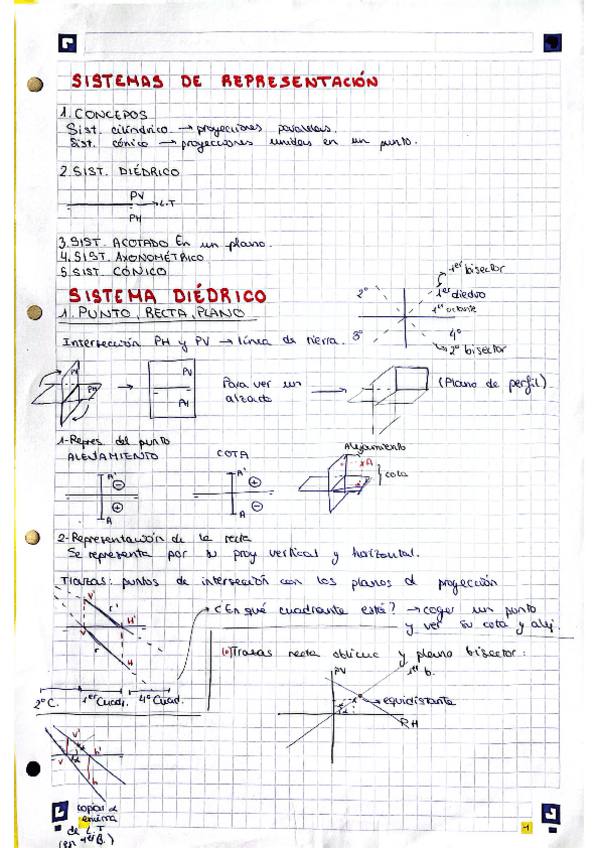 SISTEMAS DE REPRESENTACIÓN
1. CONCEPTOS
Sist. cilíndrico → proyecciones paralelas.
Sist. cónico → proyecciones unidas en un punto.
2. SIST. DIÉDRICO
PV
L.T
PH
3. SIST. ACOTADO En un plano.
4. SIST. AXONOMÉTRICO
5. SIST. CÓNICO
1er bisector
2º
1er diedro
1er octante
3º
4º
2º bisector
SISTEMA DIÉDRICO
1. PUNTO, RECTA, PLANO
Intersección PH y PV → línea de tierra.
PV
PH
PV
PH
Para ver un
alzado
(Plano de perfil)
1-Repres. del punto
ALEJAMIENTO
COTA
Alejamiento
A'
-
+
A
A'
+
-
A
A
cota
2-Representación de la recta
Se representa por su proy vertical y horizontal.
Trazas: puntos de intersección con los planos d proyección
V'
r'
H'
V
r
H
2º C.
1er Cuad.
4º Cuad.
¿En qué cuadrante está? → coger un punto
y ver su cota y alej.
Trazas recta oblicua y plano bisector:
PV
1er b.
equidistante
PH
V'
h'
V
h
copiar α
encima
de L.T
(en 1er B.)
1